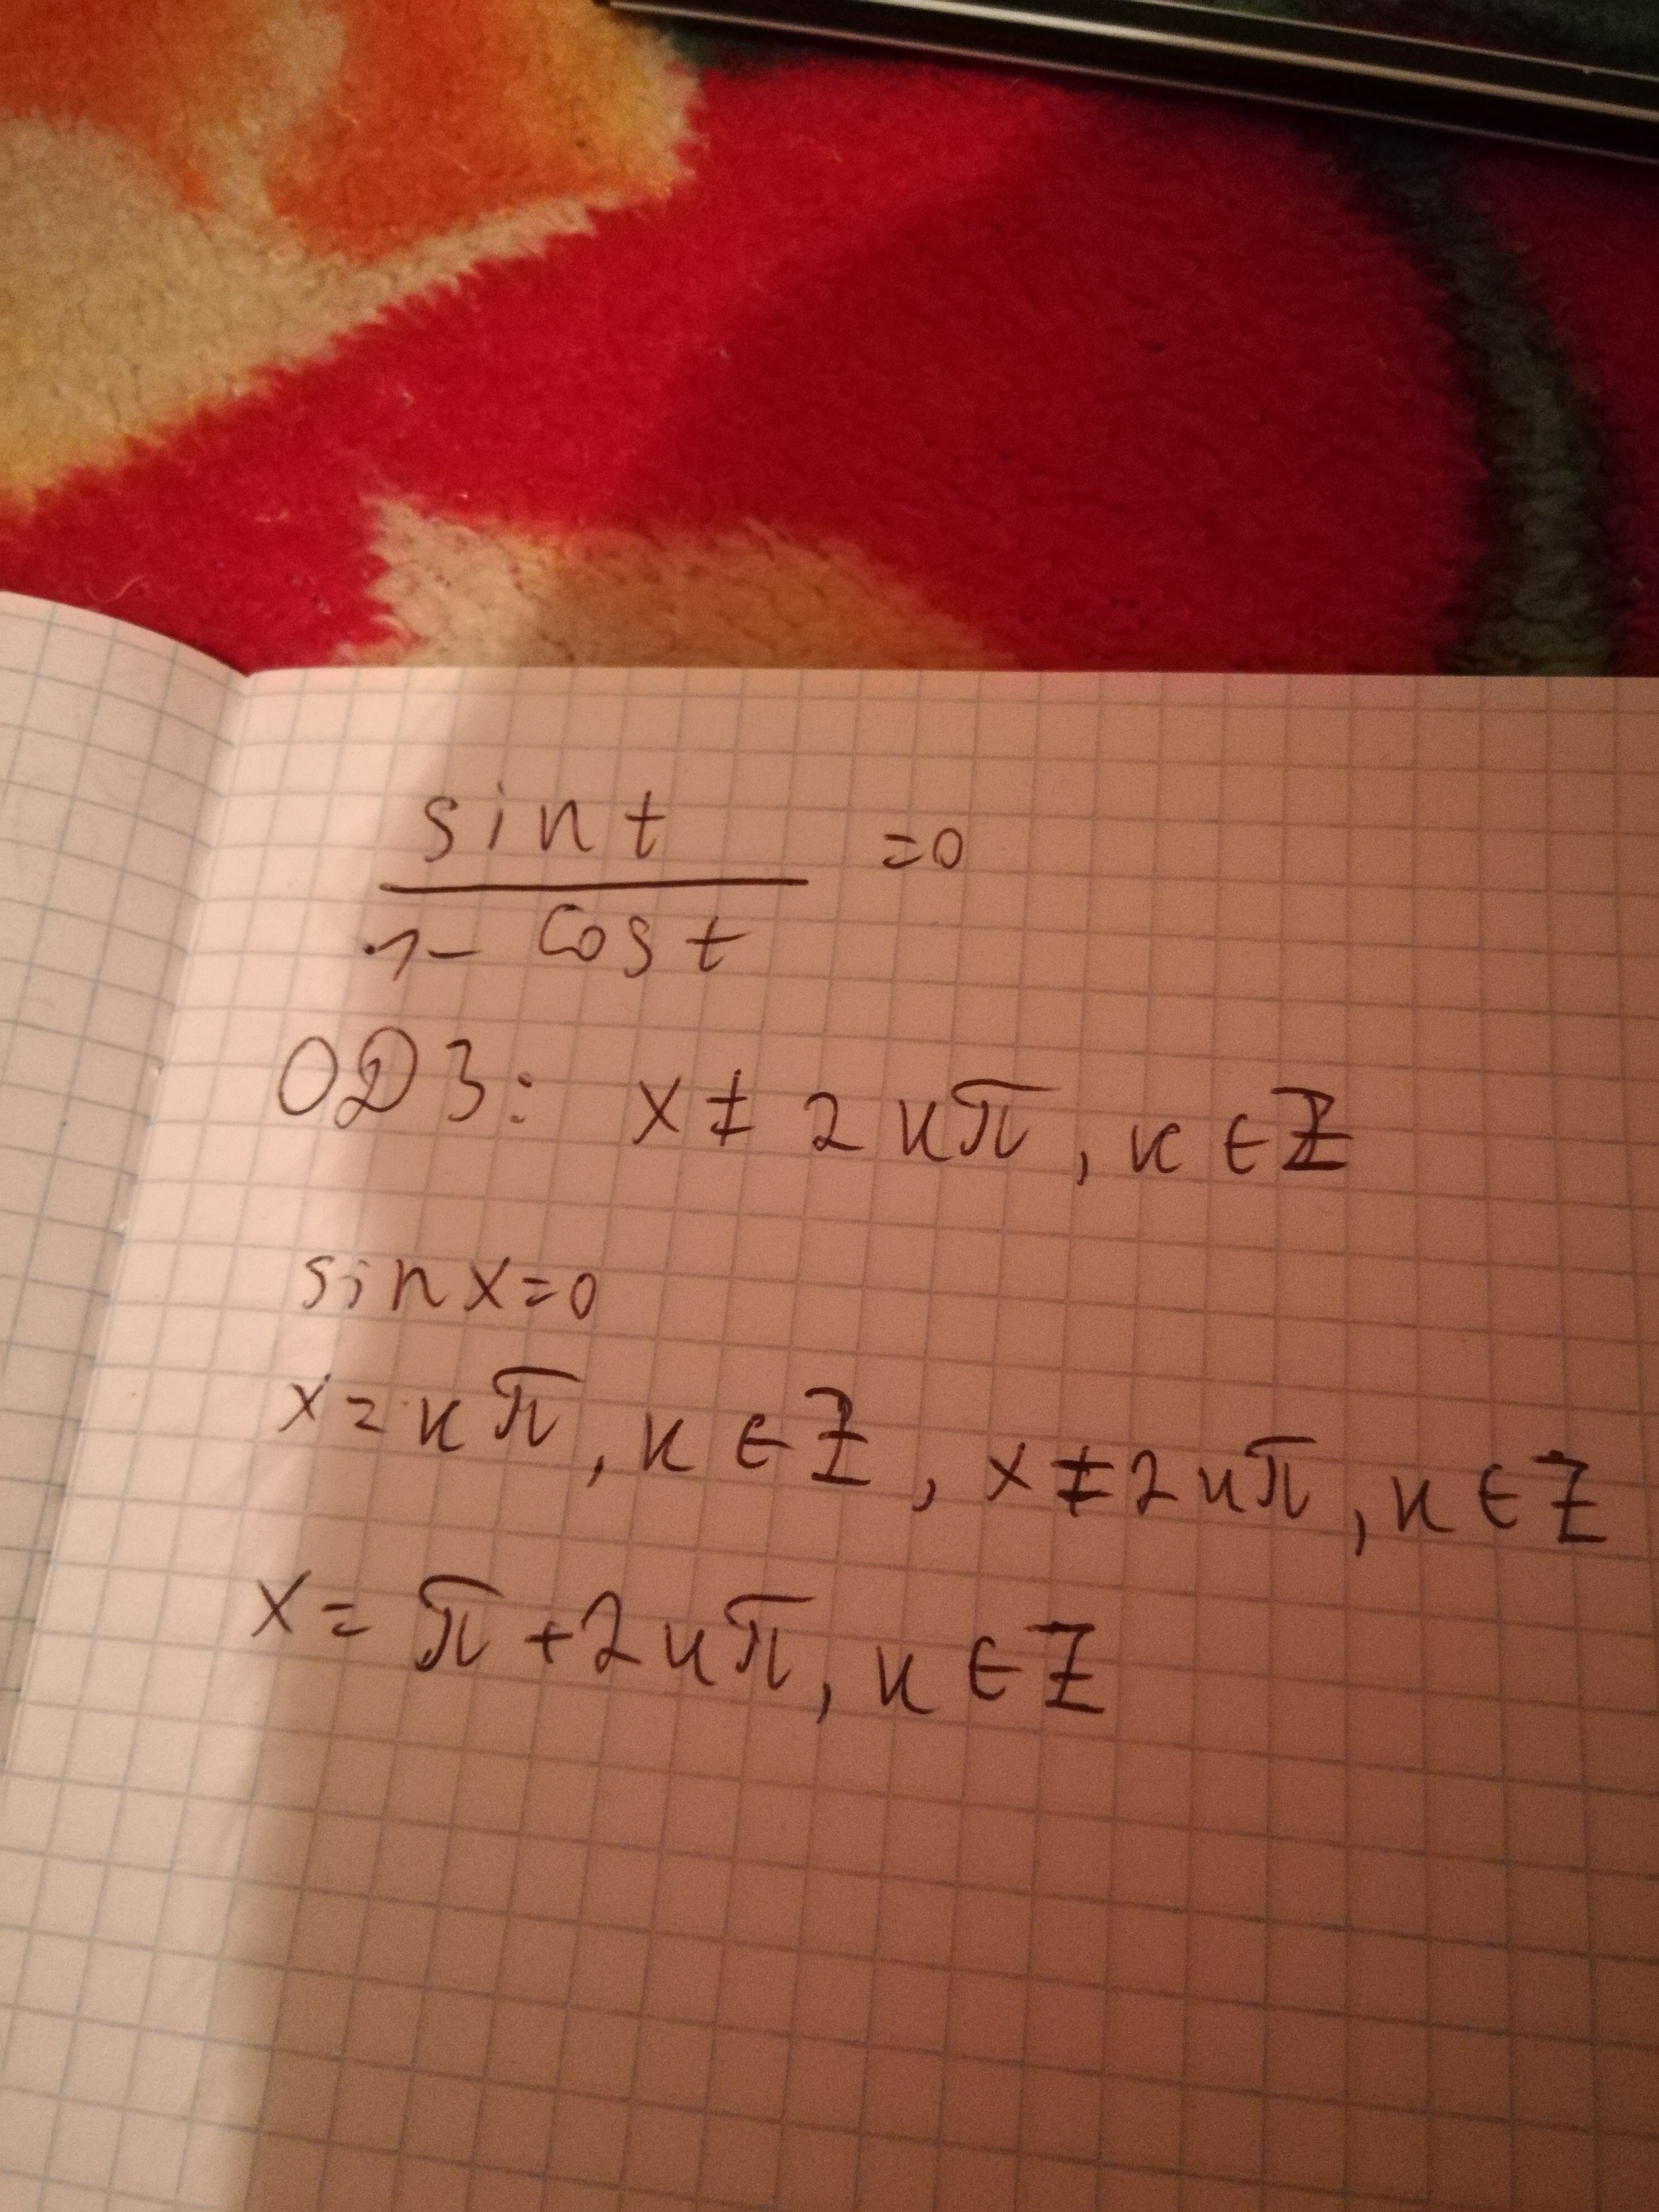 sin t / 1 - cos t = 0
ОДЗ: x ≠ 2кπ, к ∈ Z
sin x = 0
x = кπ, к ∈ Z, x ≠ 2кπ, к ∈ Z
x = π + 2кπ, к ∈ Z